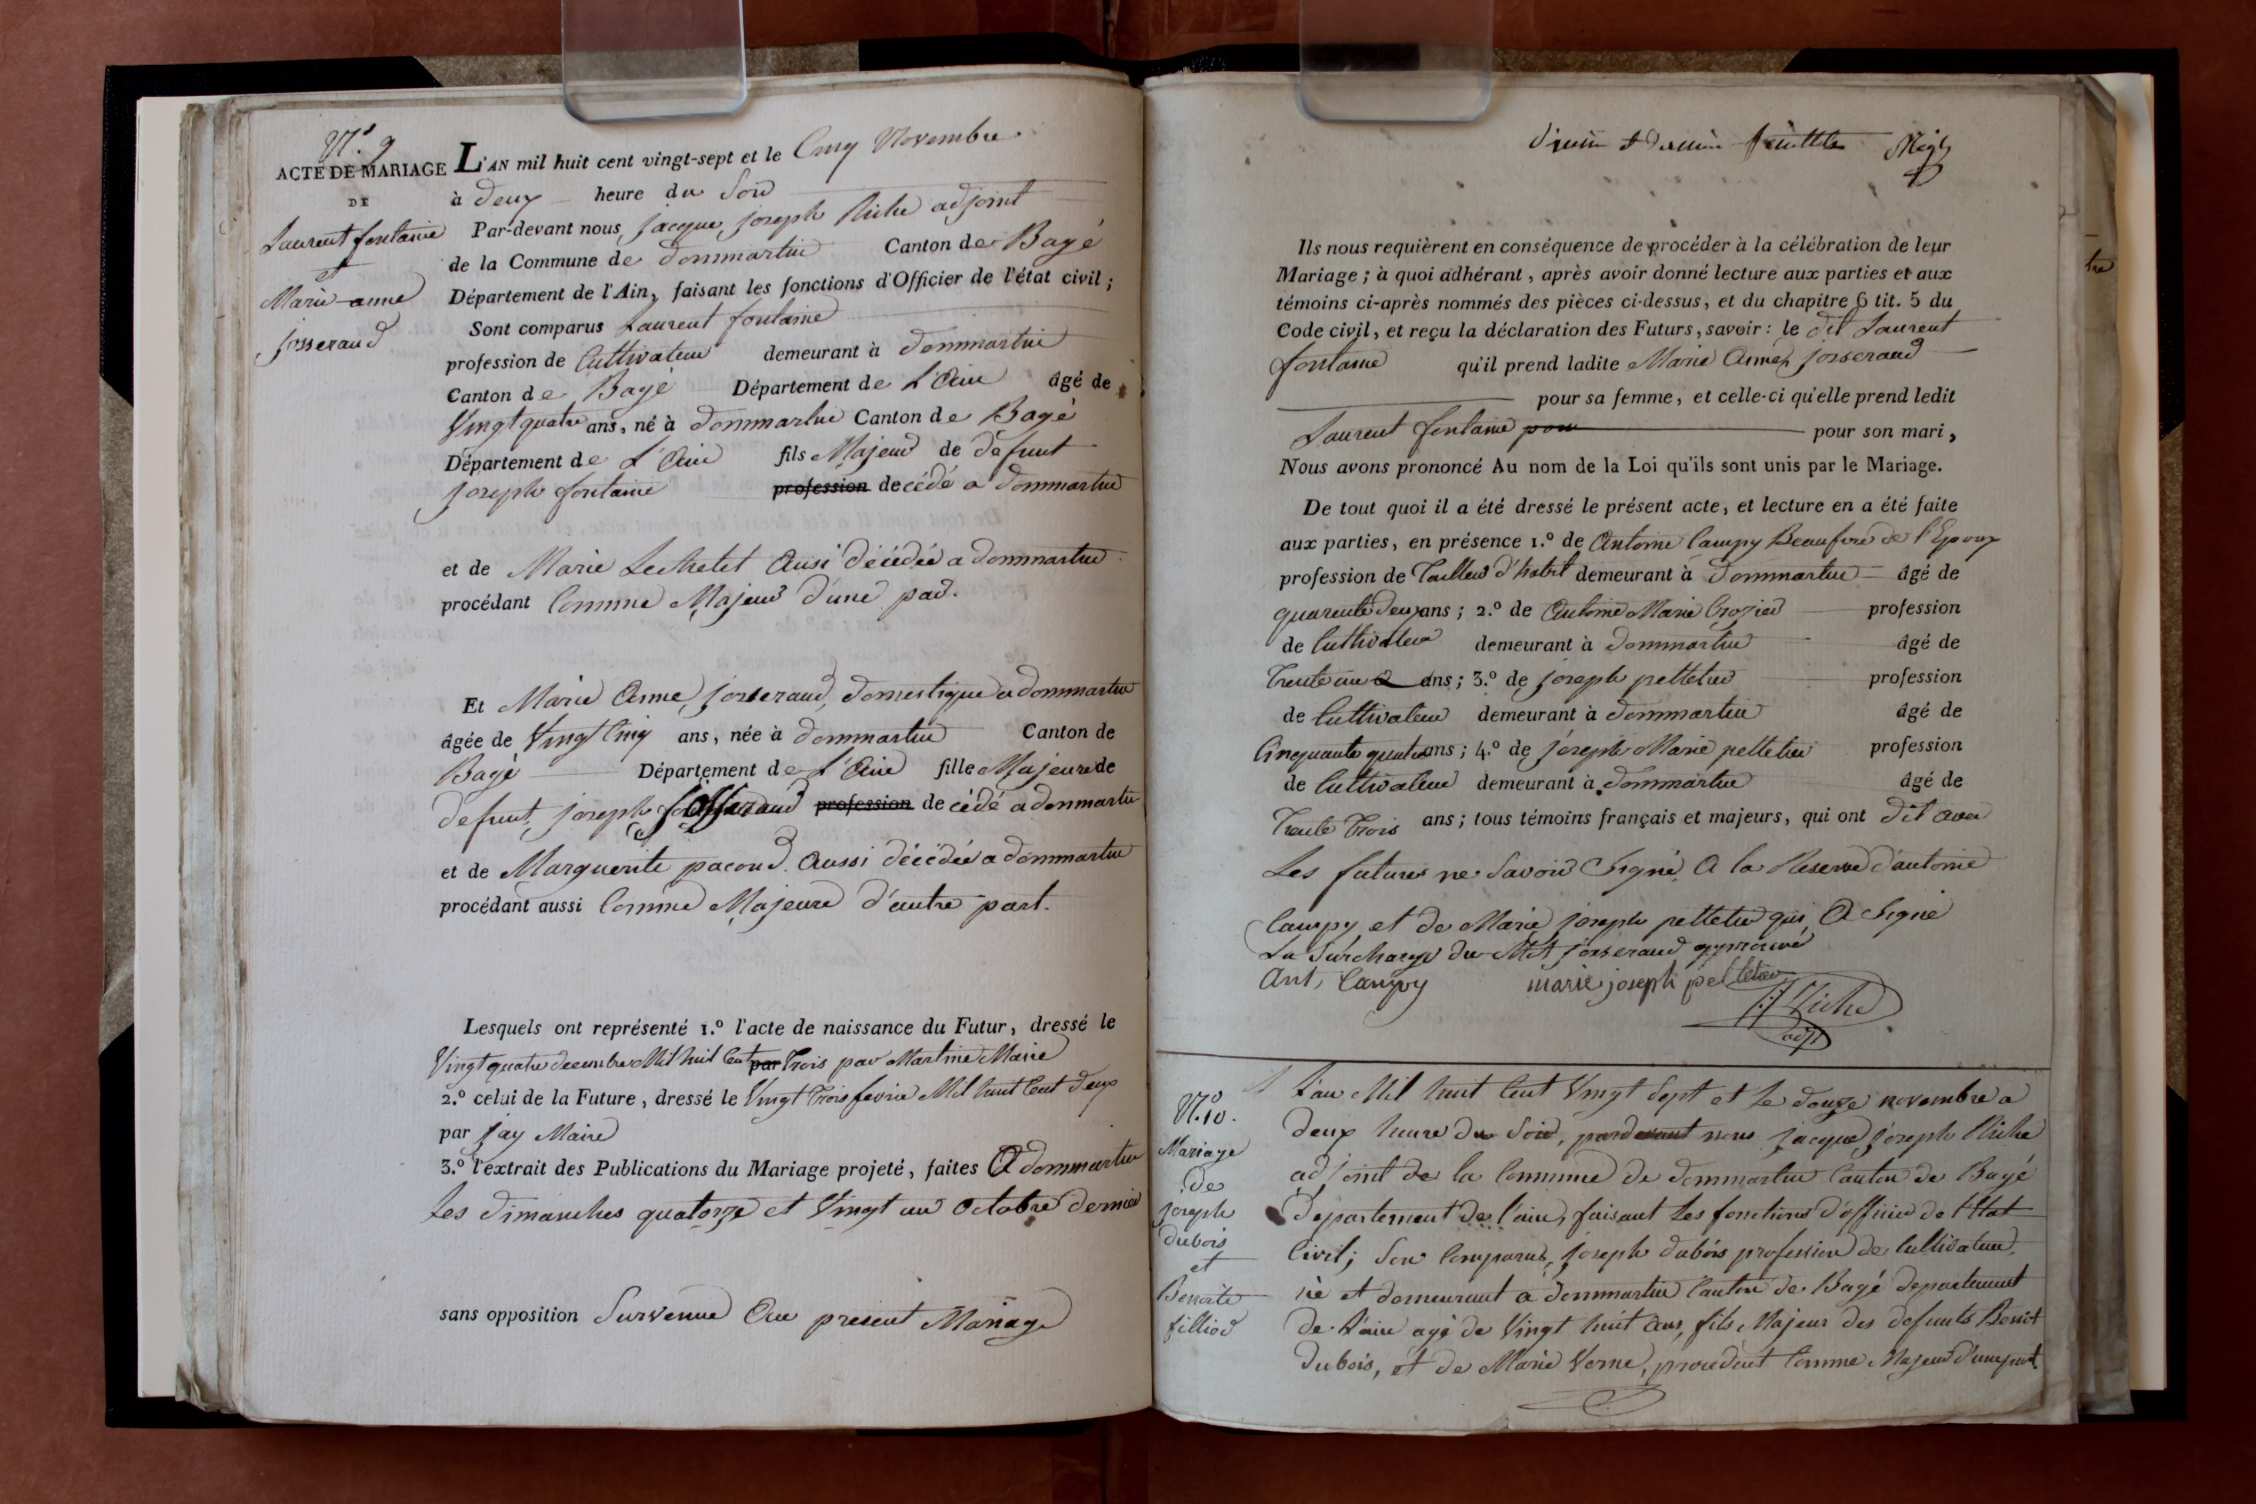 N.º 9
ACTE DE MARIAGE
DE
Laurent fontaine
et
Marie anne
josserand
L'AN mil huit cent vingt-sept et le Cinq Novembre
à deux heure du Soir
Par-devant nous jacque joseph Riche adjoint
de la Commune de dommartin Canton de Bagé
Département de l'Ain, faisant les fonctions d'Officier de l'état civil;
Sont comparus Laurent fontaine
profession de Cultivateur demeurant à dommartin
Canton de Bagé Département de L'Ain âgé de
Vingt quatre ans, né à dommartin Canton de Bagé
Département de L'Ain fils Majeur de defunt
joseph fontaine profession decédé a dommartin
et de Marie Lechelet Ausi décédée a dommartin
procédant Comme Majeur d'une par.
Et Marie Anne josserand, domestique a dommartin
âgée de Vingt Cinq ans, née à dommartin Canton de
Bagé Département de L'Ain fille Majeure de
defunt joseph josserand profession decédé a dommartin
et de Marguerite pacoud Aussi décédée a dommartin
procédant aussi Comme Majeure d'autre part.
Lesquels ont représenté 1.º l'acte de naissance du Futur, dressé le
Vingt quatre decembre Mil huit Cent par Trois par Martine Maire
2.º celui de la Future, dressé le Vingt Trois fevrier Mil huit Cent deux
par jay Maire
3.º l'extrait des Publications du Mariage projeté, faites A dommartin
Les dimanches quatorze et Vingt un Octobre dernier
sans opposition Survenue Au present Mariage
et dernier feuillete
Ils nous requièrent en conséquence de procéder à la célébration de leur
Mariage; à quoi adhérant, après avoir donné lecture aux parties et aux
témoins ci-après nommés des pièces ci-dessus, et du chapitre 6 tit. 5 du
Code civil, et reçu la déclaration des Futurs, savoir: le dit Laurent
fontaine qu'il prend ladite Marie Anne josserand
pour sa femme, et celle-ci qu'elle prend ledit
Laurent fontaine pour pour son mari,
Nous avons prononcé Au nom de la Loi qu'ils sont unis par le Mariage.
De tout quoi il a été dressé le présent acte, et lecture en a été faite
aux parties, en présence 1.º de Antoine Campy Beaufrere de l'Epoux
profession de Tailleur d'habit demeurant à dommartin âgé de
quarente deux ans; 2.º de Antoine Marie Crozier profession
de Cultivateur demeurant à dommartin âgé de
Trente un ans; 3.º de joseph pelletier profession
de Cultivateur demeurant à dommartin âgé de
Cinquante quatre ans; 4.º de joseph Marie pelletier profession
de Cultivateur demeurant à dommartin âgé de
Trente Trois ans; tous témoins français et majeurs, qui ont dit avec
Les futures ne Savoir Signé A la Reserve d'antoine
Campy et de Marie joseph pelletier qui A Signé
La Surcharge du Mot josserand approuvé
Ant, Campy marie joseph pelletier
Riche
adjt
N.º 10.
Mariage
de
joseph
dubois
et
Benoite
filliod
L'an Mil huit Cent Vingt Sept et Le douze novembre a
deux heure du Soir, pardevant nous jacque joseph Riche
adjoint de la Commune de dommartin Canton de Bagé
departement de l'ain, faisant Les fonctions d'officier de l'Etat
Civil; Son Comparus, joseph dubois profession de Cultivateur,
né et demeurant a dommartin Canton de Bagé departement
de L'ain agé de Vingt huit Ans, fils Majeur des defunts Benoit
dubois, et de Marie Verne, procedent Comme Majeur d'une part.